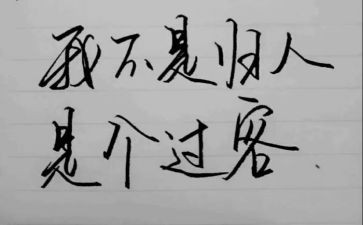 我不是归人
是个过客.